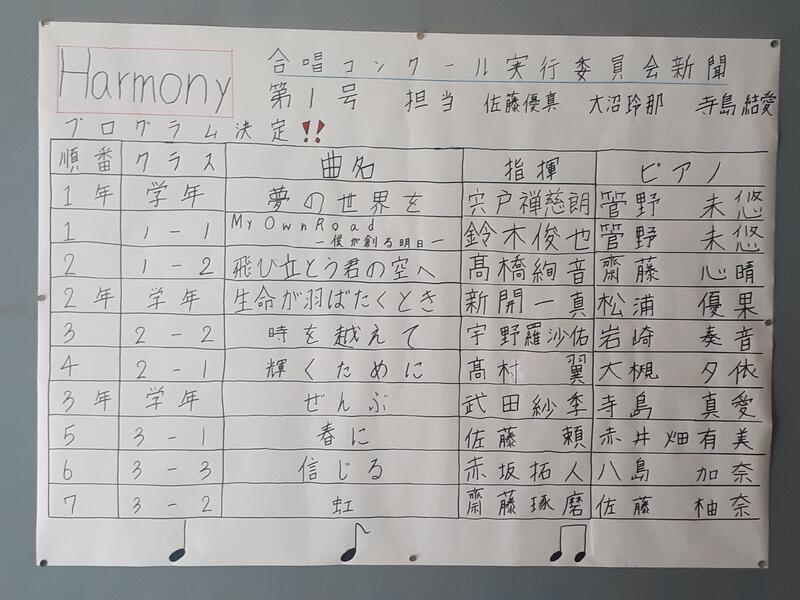 Harmony
合唱コンクール実行委員会新聞
第1号 担当 佐藤優真 大沼玲那 寺島結愛
プログラム決定!!
順番 クラス 曲名 指揮 ピアノ
1年 学年 夢の世界を 宍戸禅慈朗 管野未悠
1 1-1 My Own Road ー僕が創る明日ー 鈴木俊也 管野未悠
2 1-2 飛び立とう君の空へ 髙橋絢音 齋藤心晴
2年 学年 生命が羽ばたくとき 新開一真 松浦優果
3 2-2 時を越えて 宇野羅沙佑 岩崎奏音
4 2-1 輝くために 髙村翼 大槻夕依
3年 学年 ぜんぶ 武田紗季 寺島真愛
5 3-1 春に 佐藤頼 赤井畑有美
6 3-3 信じる 赤坂拓人 八島加奈
7 3-2 虹 齋藤琢磨 佐藤柚奈